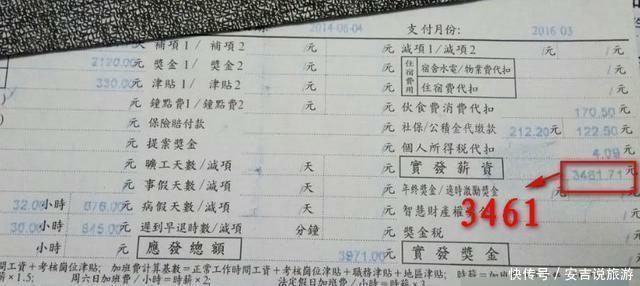 2014-06-04 支付月份: 2016 03
補項1/ 補項2 /元 減項1/減項2 /元
2120.00元 獎金1/ 獎金2 /元 住宿費用 宿舍水電/物業費代扣 元
330.00元 津貼1/ 津貼2 /元 住宿費代扣 元
元 鐘點費1/鐘點費2 /元 伙食費消費代扣 170.50元
元 保險賠付款 元 社保/公積金代繳款 212.20元 122.50元
元 提案獎金 元 個人所得稅代扣 4.09元
元 曠工天數/減項 天 / 元 實發薪資 3461.71元
元 事假天數/減項 天 / 元 年終獎金/適時激勵獎金 /元
32.00小時 676.00元 病假天數/減項 天 / 元 智慧財產權 元
3461
30.00小時 645.00元 遲到早退時數/減項 分鐘 / 元 獎金稅 元
小時 元 應發總額 3971.00元 實發獎金 元
間工資+考核崗位津貼; 加班費計算基數=正常工作時間工資+考核崗位津貼+職務津貼+地區津貼; 時薪=加班
×1.5; 周六日加班費/小時=時薪×2; 法定假日加班費/小時=時薪×3
快传号 / 安吉说旅游